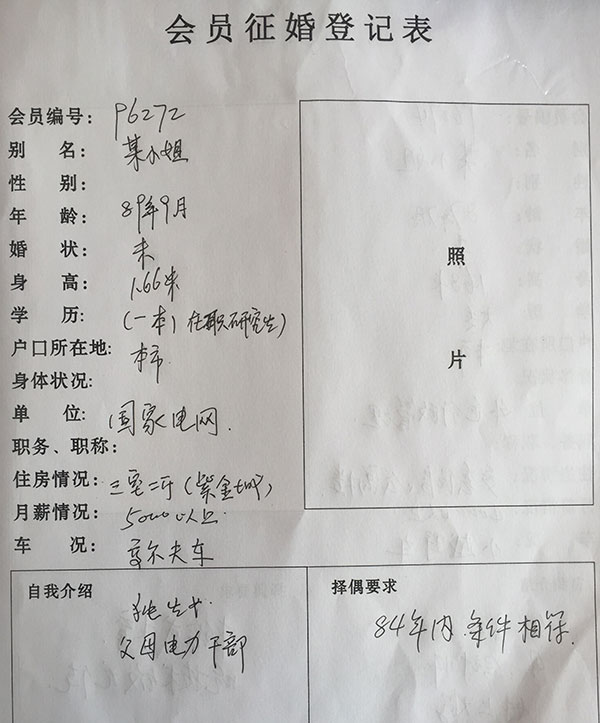 会员征婚登记表
会员编号: P6272
别 名: 某小姐
性 别:
年 龄: 89年9月
婚 状: 未
身 高: 1.66米
学 历: (一本) 在职研究生)
户口所在地: 本市
身体状况:
单 位: 国家电网.
职务、职称:
住房情况: 三室二厅 (紫金城)
月薪情况: 5000以上
车 况: 高尔夫车
照
片
自我介绍
独生女
父母电力干部
择偶要求
84年内.条件相符.